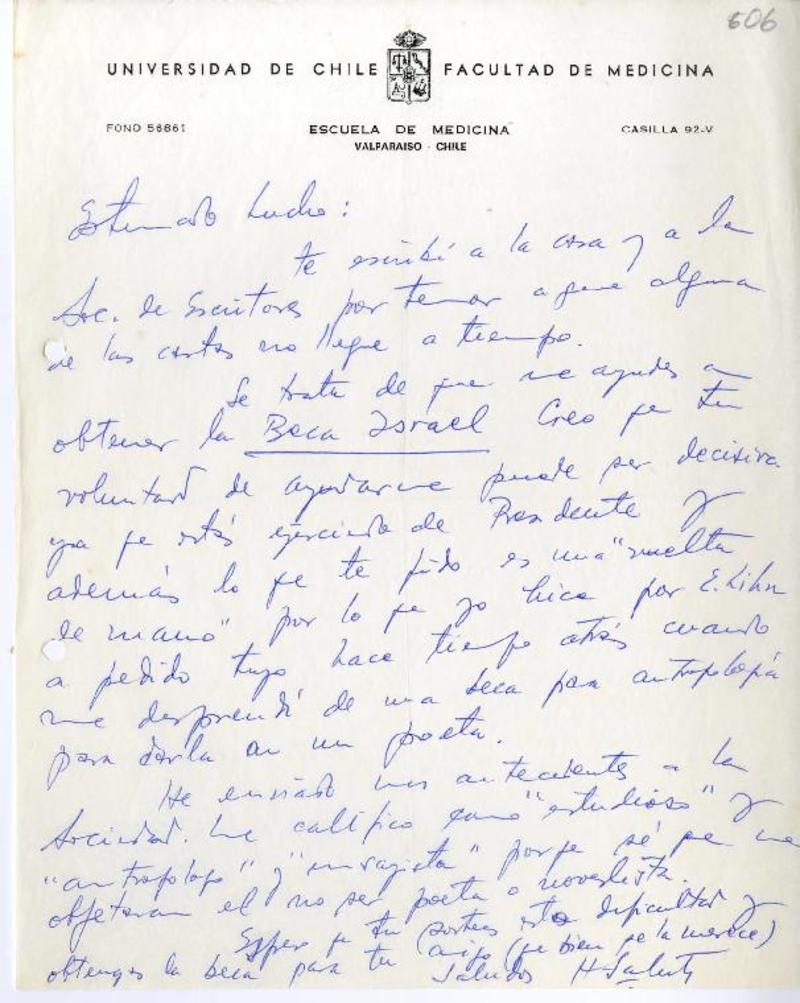 606
UNIVERSIDAD DE CHILE FACULTAD DE MEDICINA
FONO 56861 ESCUELA DE MEDICINA CASILLA 92-V
VALPARAISO - CHILE
Estimado Lucho:
te escribí a la casa y a la
Soc. de Escritores por temor a que alguna
de las cartas no llegue a tiempo.
Se trata de que me ayudes a
obtener la Beca Israel Creo qe tu
voluntad de ayudarme puede ser decisiva
ya qe estás ejerciendo de Presidente y
además lo qe te pido es una "vuelta
de mano" por lo qe yo hice por E. Lihn
a pedido tuyo hace tiempo atrás cuando
me desprendí de una beca para antropología
para darla a un poeta.
He enviado mis antecedentes a la
Sociedad. Me califico como "estudioso" y
"antropólogo" y "ensayista" porqe sé qe me
objetaran el no ser poeta o novelista.
Espero qe tu sortees esta dificultad y
obtengas la beca para tu amigo (qe bien se la merece)
Saludos